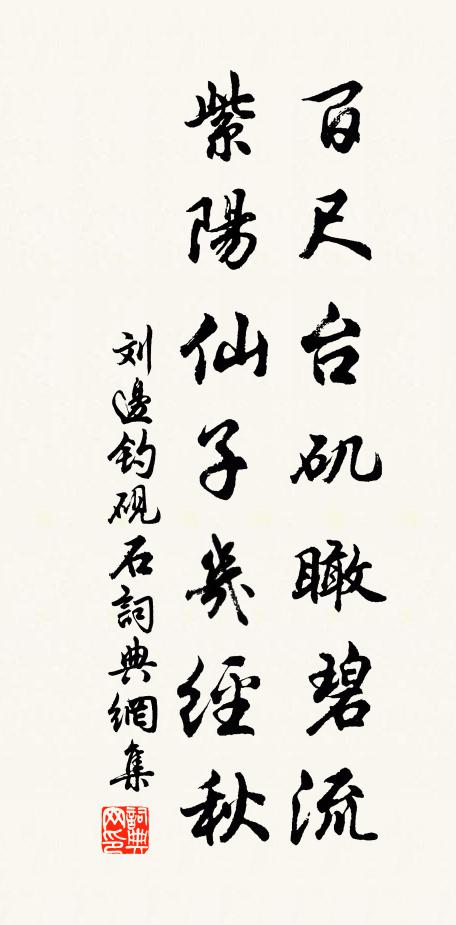 百尺台矶瞰碧流
紫陽仙子幾經秋
刘邊钓硯石詞典網集
詞典
网印